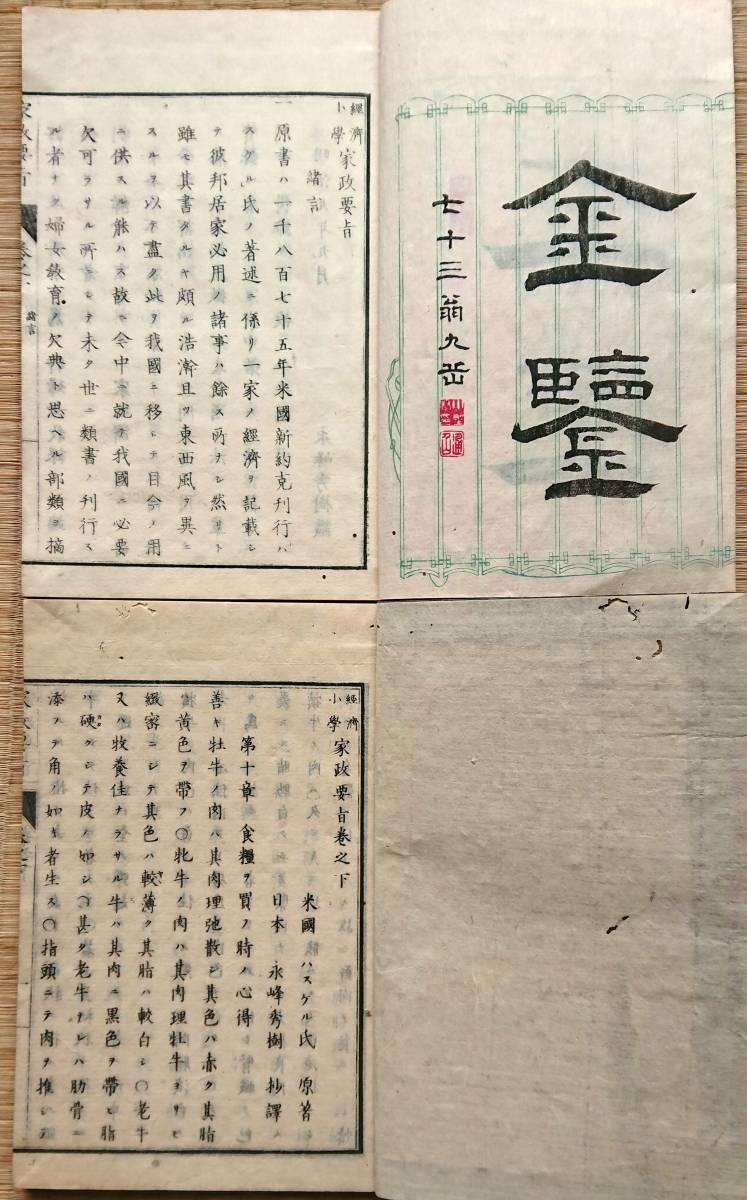 金鑒
七十三翁九岳
經濟小學 家政要旨
諸言
一 原書ハ一千八百七十五年米國新約克刊行ハ
スケル氏ノ著述ニ係リ一家ノ經濟ヲ記載シ
テ彼邦居家必用ノ諸事ハ餘ス所ナシ然リト
雖モ其書タルヤ頗ル浩瀚且ツ東西風ヲ異ニ
スルヲ以テ盡ク此ヲ我國ニ移シテ目今ノ用
ニ供スル能ハス故ニ今中ニ就テ我國ニ必要
欠可ラサル所ニシテ未タ世ニ類書ノ刊行ス
ル者ナク婦女教育ノ欠典ト思ヘル部類ヲ摘
家政要旨
經濟小學 家政要旨卷之下
米國 ハスケル氏 原著
日本 永峰秀樹 抄譯
第十章 食糧ヲ買フ時ノ心得
善キ牡牛ノ肉ハ其肉理弛散シ其色ハ赤ク其脂
黄色ヲ帶フ〇牝牛ノ肉ハ其肉理牡牛ヨリモ
緻密ニシテ其色ハ較薄ク其脂ハ較白シ〇老牛
又ハ牧養佳ナラサル牛ハ其肉ニ黒色ヲ帶ヒ脂
ハ硬クシテ皮ノ如シ〇甚タ老牛ナレハ肋骨ニ
添フテ角ノ如キ者生ス〇指頭ニテ肉ヲ推シテ